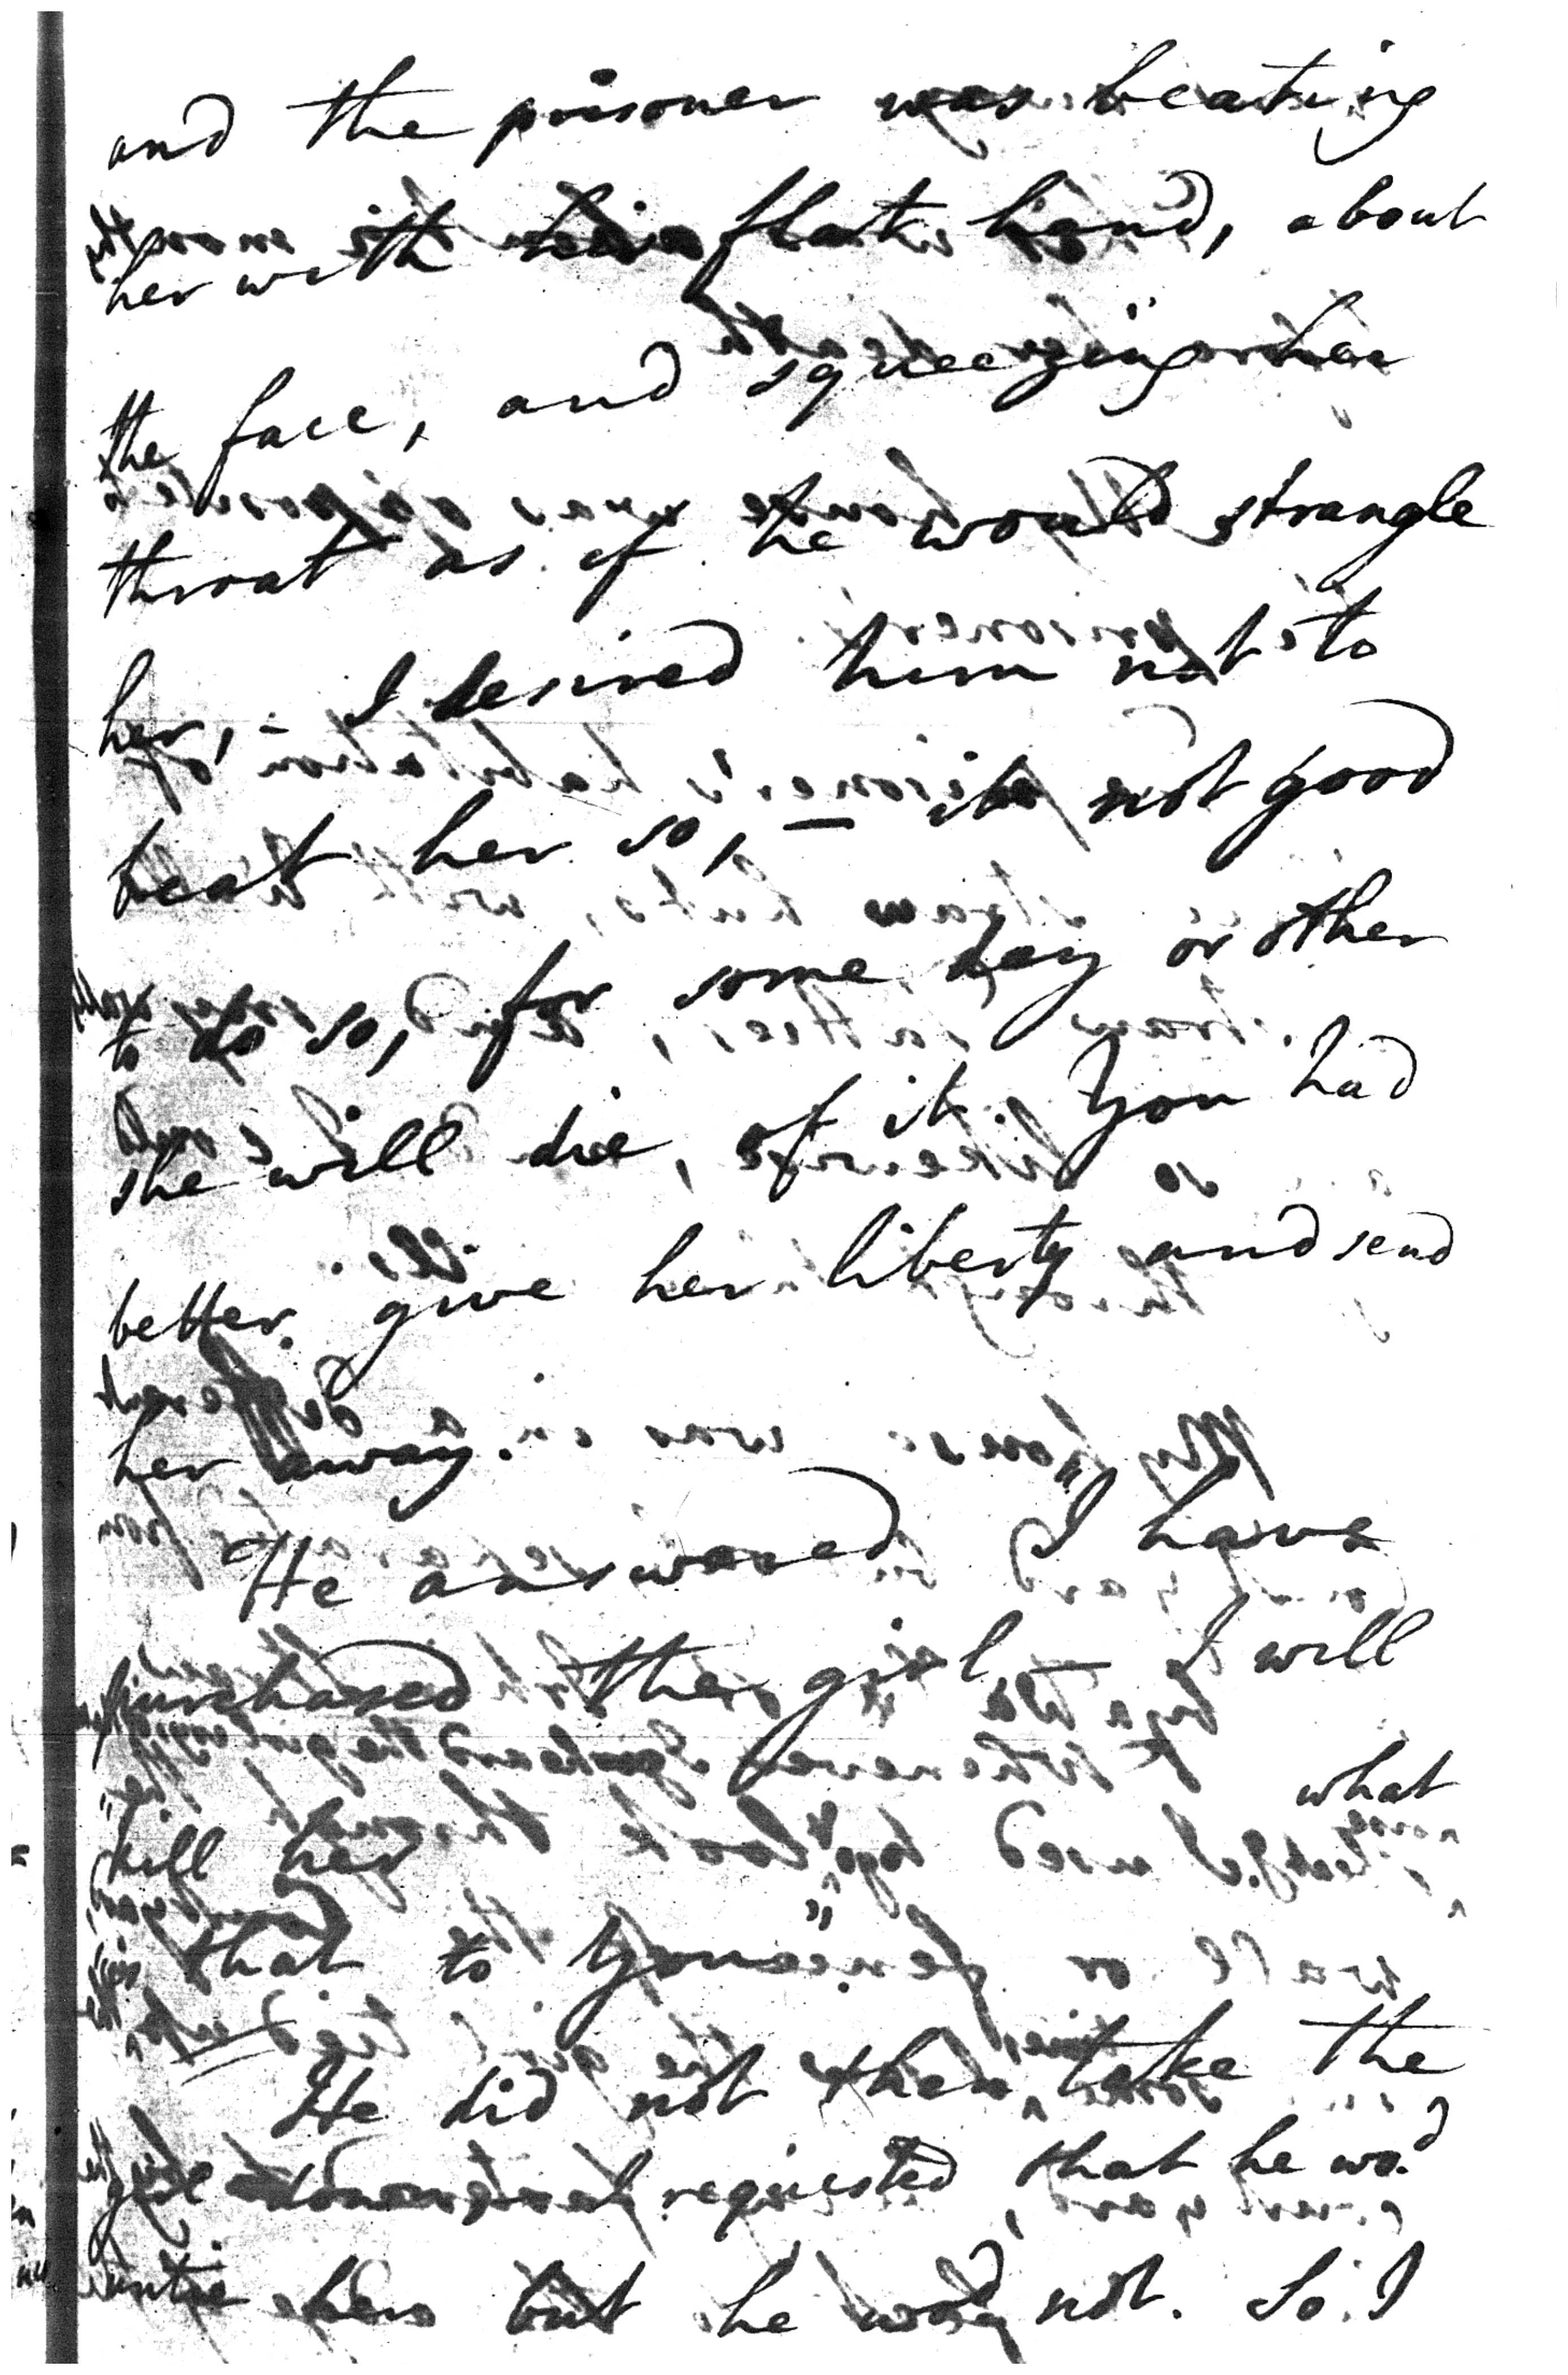 and the prisoner was beating
her with his flat hand, about
the face, and squeezing her
throat as if he would strangle
her, - I desired him not to
beat her so, — its not good
to do so, for some day or other
she will die, of it. You had
better give her liberty and send
her away.
He answered "I have
purchased the girl, — I will
kill her what
is that to you."
He did not then take the
girl down I requested, that he wo.d
untie her but he wod not. So I